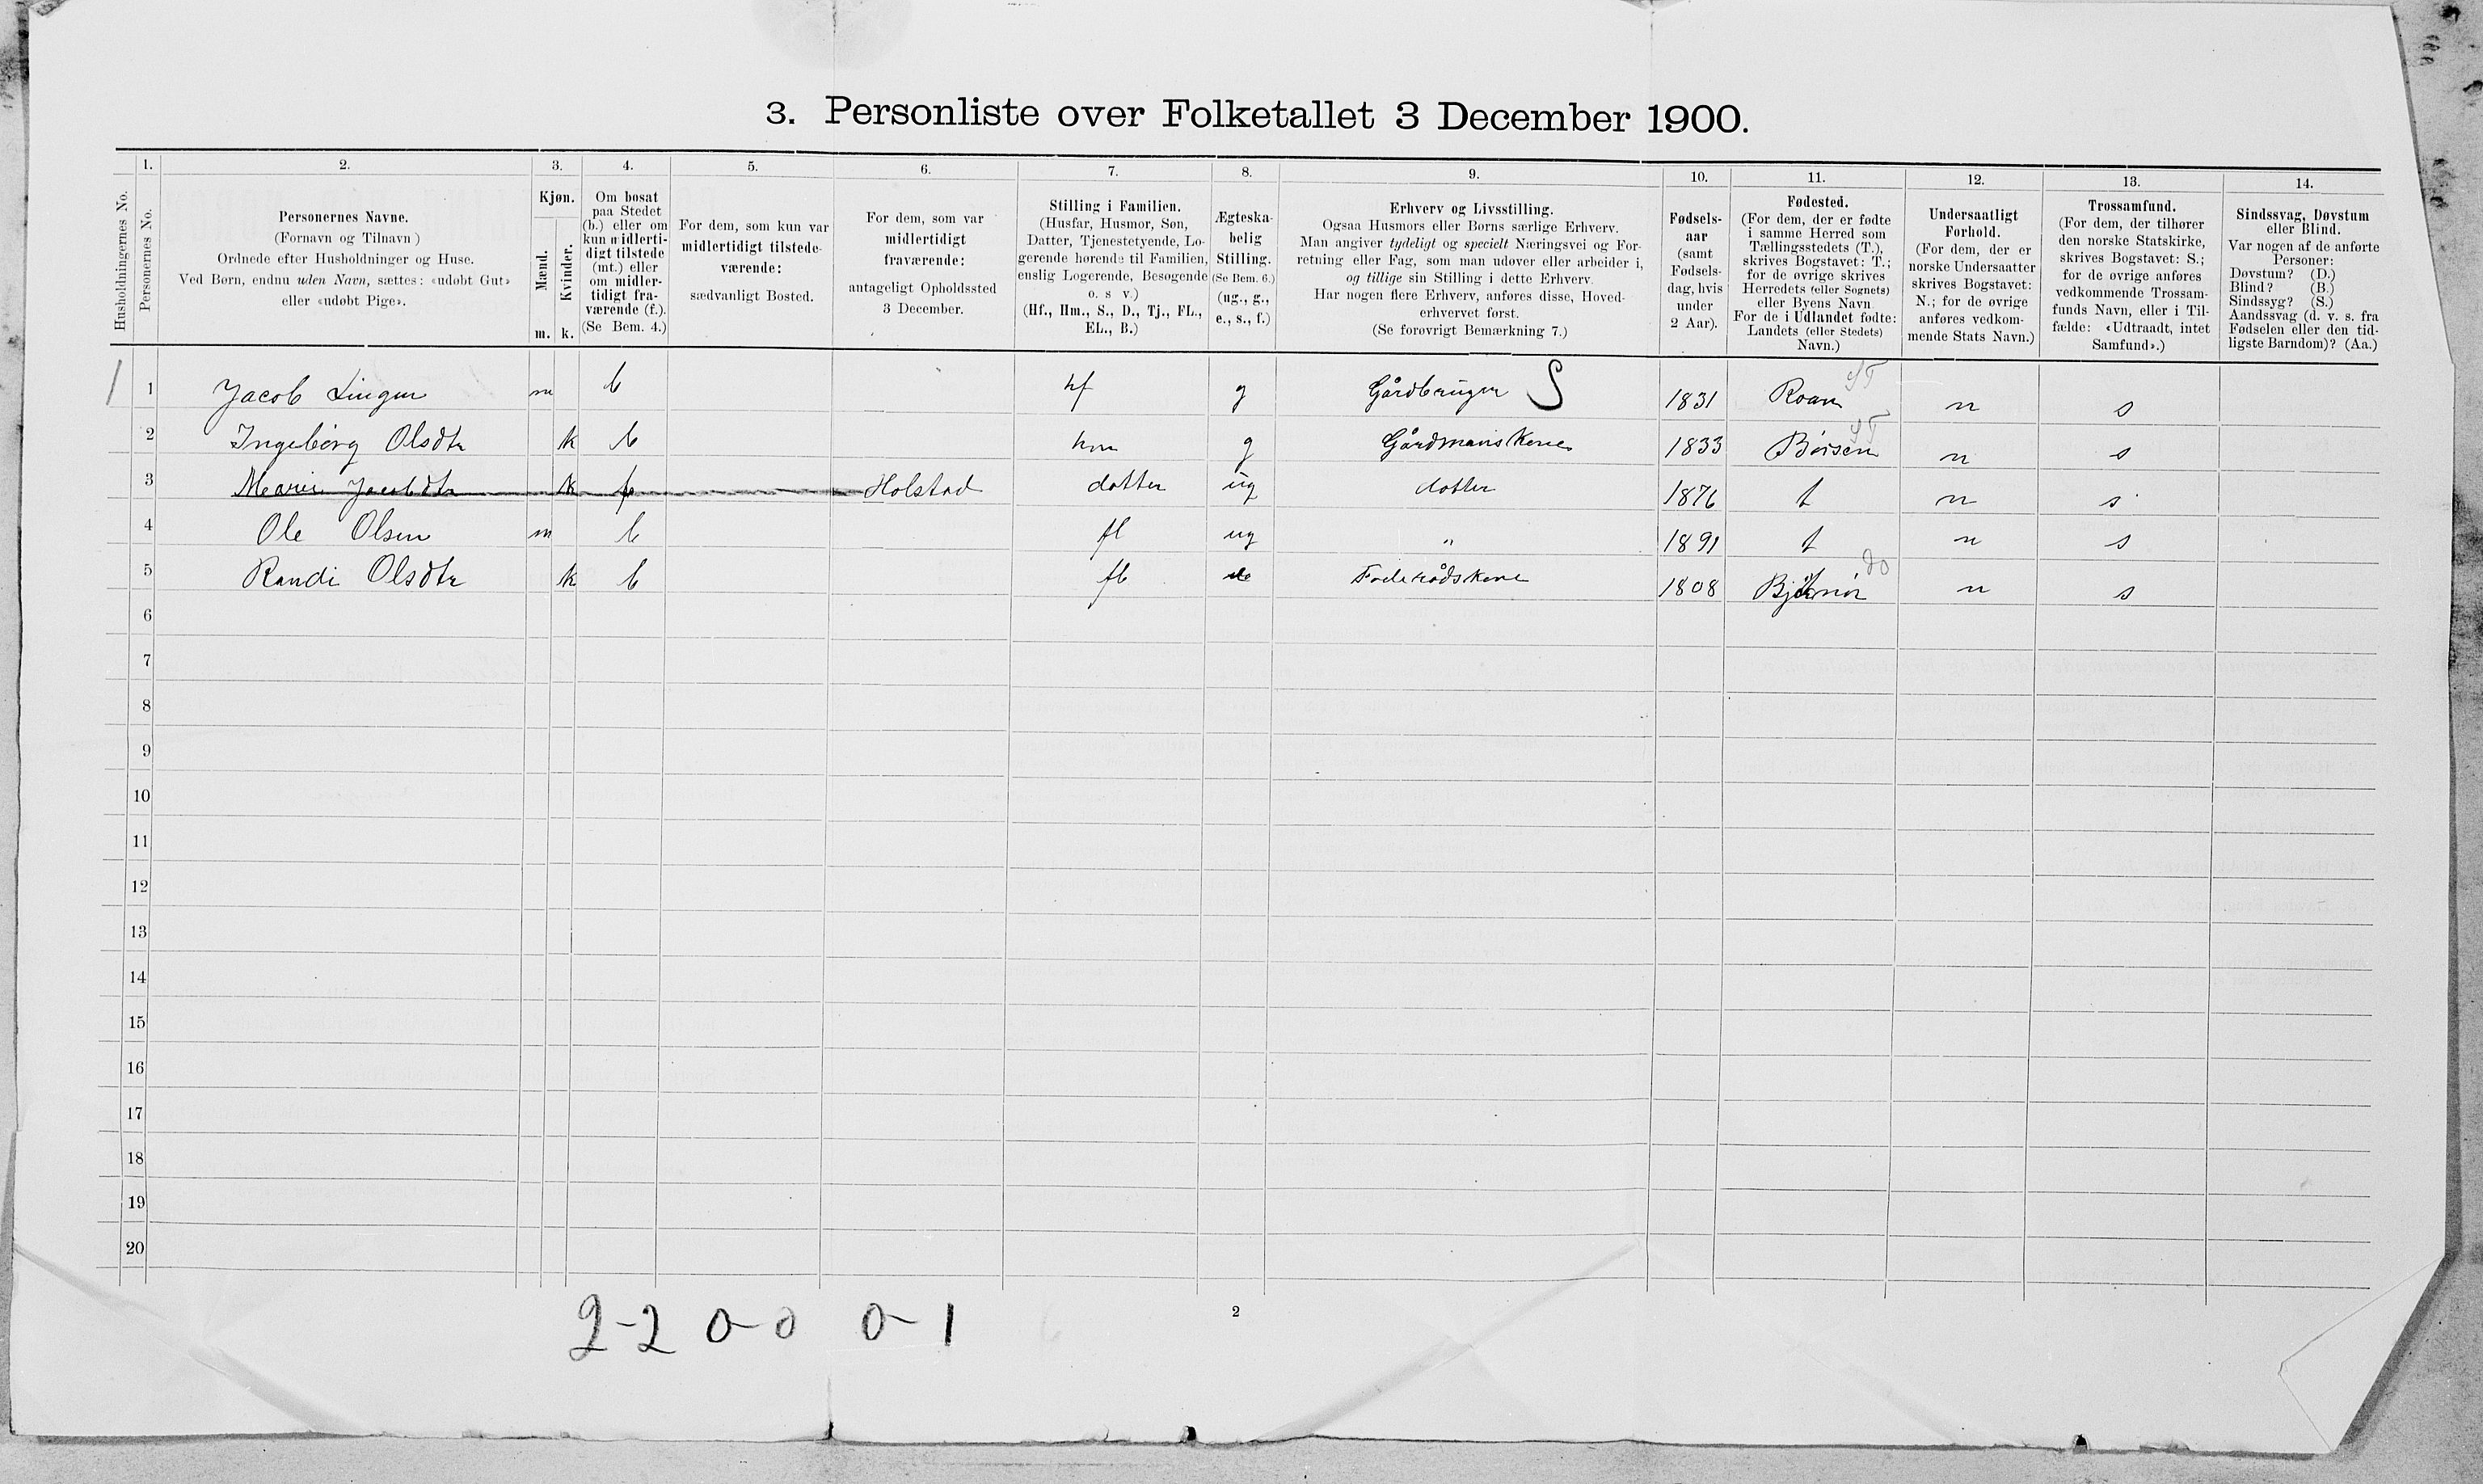 3. Personliste over Folketallet 3 December 1900.
Husholdningernes No.
1.
Personernes No.
2.
Personernes Navne.
(Fornavn og Tilnavn)
Ordnede efter Husholdninger og Huse.
Ved Børn, endnu uden Navn, sættes: «udøbt Gut»
eller «udøbt Pige».
3.
Kjøn.
Mænd.
Kvinder.
m. k.
4.
Om bosat
paa Stedet
(b.) eller om
kun midlerti-
digt tilstede
(mt.) eller
om midler-
tidigt fra-
værende (f.).
(Se Bem. 4.)
5.
For dem, som kun var
midlertidigt tilstede-
værende:
sædvanligt Bosted.
6.
For dem, som var
midlertidigt
fraværende:
antageligt Opholdssted
3 December.
7.
Stilling i Familien.
(Husfar, Husmor, Søn,
Datter, Tjenestetyende, Lo-
gerende hørende til Familien,
enslig Logerende, Besøgende
o. s v.)
(Hf., Hm., S., D., Tj., FL.,
EL., B.)
8.
Ægteska-
belig
Stilling.
(Se Bem. 6.)
(ug., g.,
e., s., f.)
9.
Erhverv og Livsstilling.
Ogsaa Husmors eller Børns særlige Erhverv.
Man angiver tydeligt og specielt Næringsvei og For-
retning eller Fag, som man udøver eller arbeider i,
og tillige sin Stilling i dette Erhverv.
Har nogen flere Erhverv, anføres disse, Hoved-
erhvervet først.
(Se forøvrigt Bemærkning 7.)
10.
Fødsels-
aar
(samt
Fødsels-
dag, hvis
under
2 Aar).
11.
Fødested.
(For dem, der er fødte
i samme Herred som
Tællingsstedets (T.),
skrives Bogstavet: T.;
for de øvrige skrives
Herredets (eller Sognets)
eller Byens Navn
For de i Udlandet fødte:
Landets (eller Stedets)
Navn.)
12.
Undersaatligt
Forhold.
(For dem, der er
norske Undersaatter
skrives Bogstavet:
N.; for de øvrige
anføres vedkom-
mende Stats Navn.)
13.
Trossamfund.
(For dem, der tilhører
den norske Statskirke,
skrives Bogstavet: S.;
for de øvrige anføres
vedkommende Trossam-
funds Navn, eller i Til-
fælde: «Udtraadt, intet
Samfund».)
14.
Sindssvag, Døvstum
eller Blind.
Var nogen af de anførte
Personer:
Døvstum? (D.)
Blind? (B.)
Sindssyg? (S.)
Aandssvag (d. v. s. fra
Fødselen eller den tid-
ligste Barndom)? (Aa.)
1 1 Jacob Lingen m b hf g Gårdbruger S 1831 Roan ST n s
2 Ingeborg Olsdtr k b hm g Gårdmans Kone 1833 Börsen ST n s
3 Marie Jacobdtr k f Holstad datter ug datter 1876 t n s
4 Ole Olsen m b fl ug " 1891 t n s
5 Randi Olsdtr k b fl e Föderådskone 1808 Björnör do n s
6
7
8
9
10
11
12
13
14
15
16
17
18
19
20
2-2 0-0 0-1
2